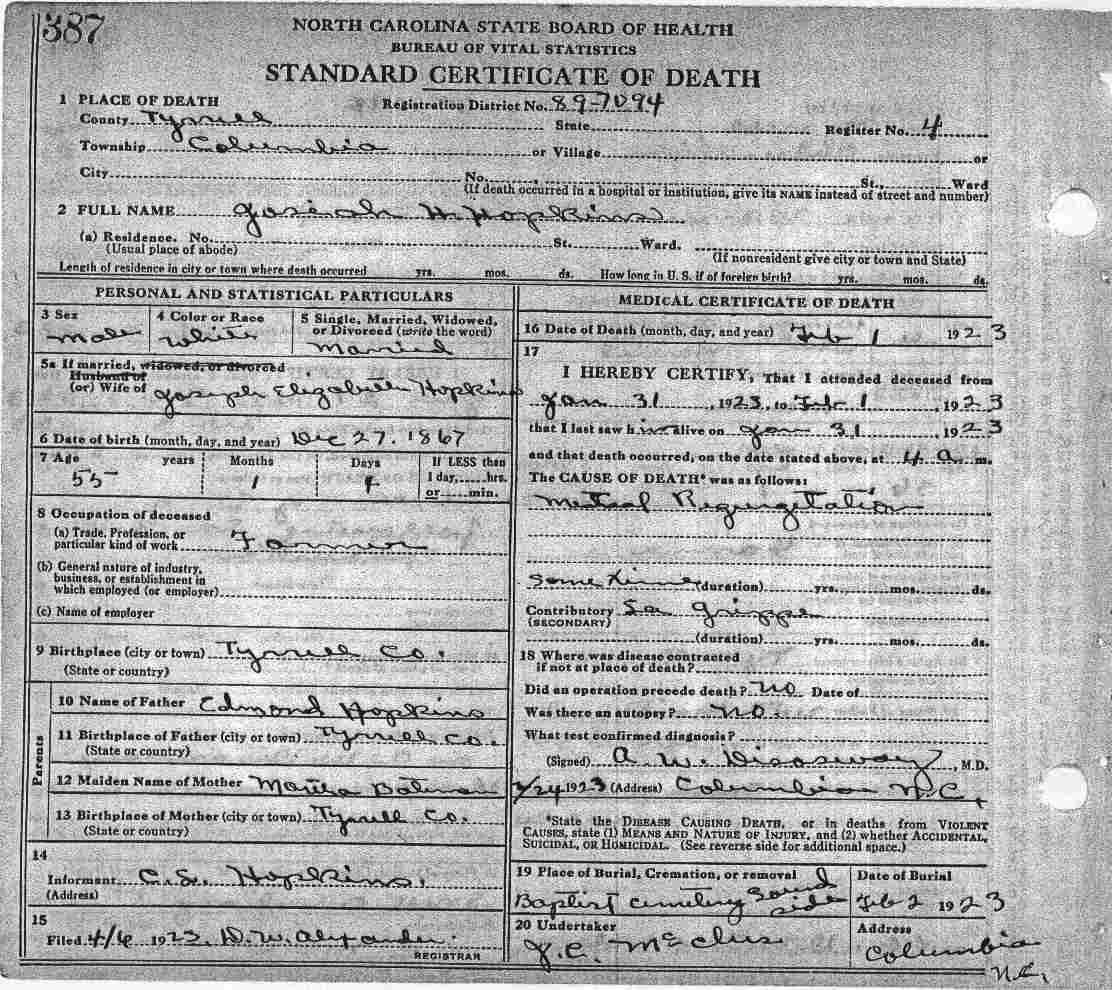 387
NORTH CAROLINA STATE BOARD OF HEALTH
BUREAU OF VITAL STATISTICS
STANDARD CERTIFICATE OF DEATH
1 PLACE OF DEATH Registration District No. 89-7094
County Tyrrell State Register No. 4
Township Columbia or Village or
City No. St., Ward
(If death occurred in a hospital or institution, give its NAME instead of street and number)
2 FULL NAME Josiah H. Hopkins
(a) Residence. No. St. Ward.
(Usual place of abode) (If nonresident give city or town and State)
Length of residence in city or town where death occurred yrs. mos. ds. How long in U. S. if of foreign birth? yrs. mos. ds.
PERSONAL AND STATISTICAL PARTICULARS
3 Sex 4 Color or Race 5 Single, Married, Widowed, or Divorced (write the word)
Male White Married
5a If married, widowed, or divorced
Husband of
(or) Wife of Joseph Elizabeth Hopkins
6 Date of birth (month, day, and year) Dec 27. 1867
7 Age years Months Days If LESS than
55 1 4 1 day, hrs.
or min.
8 Occupation of deceased
(a) Trade, Profession, or
particular kind of work Farmer
(b) General nature of industry,
business, or establishment in
which employed (or employer)
(c) Name of employer
9 Birthplace (city or town) Tyrrell Co.
(State or country)
Parents
10 Name of Father Edmond Hopkins
11 Birthplace of Father (city or town) Tyrrell Co.
(State or country)
12 Maiden Name of Mother Batman
13 Birthplace of Mother (city or town) Tyrrell Co.
(State or country)
14
Informant C.S. Hopkins.
(Address)
15
Filed 4/6 1923 D.W. Alexander.
REGISTRAR
MEDICAL CERTIFICATE OF DEATH
16 Date of Death (month, day, and year) Feb 1 1923
17
I HEREBY CERTIFY, That I attended deceased from
Jan 31, 1923, to Feb 1, 1923
that I last saw him alive on Jan 31 1923
and that death occurred, on the date stated above, at 4 a. m.
The CAUSE OF DEATH* was as follows:
Mitral Regurgitation
Some time (duration) yrs. mos. ds.
Contributory La Grippe
(SECONDARY)
(duration) yrs. mos. ds.
18 Where was disease contracted
if not at place of death?
Did an operation precede death? no Date of
Was there an autopsy? no.
What test confirmed diagnosis?
(Signed) A. W. Disosway, M.D.
1923 (Address) Columbia N.C.
*State the DISEASE CAUSING DEATH, or in deaths from VIOLENT
CAUSES, state (1) MEANS AND NATURE OF INJURY, and (2) whether ACCIDENTAL,
SUICIDAL, OR HOMICIDAL. (See reverse side for additional space.)
19 Place of Burial, Cremation, or removal Date of Burial
Baptist Cemetery Sound Side Feb 2 1923
20 Undertaker Address
J.C. Columbia
N.C.